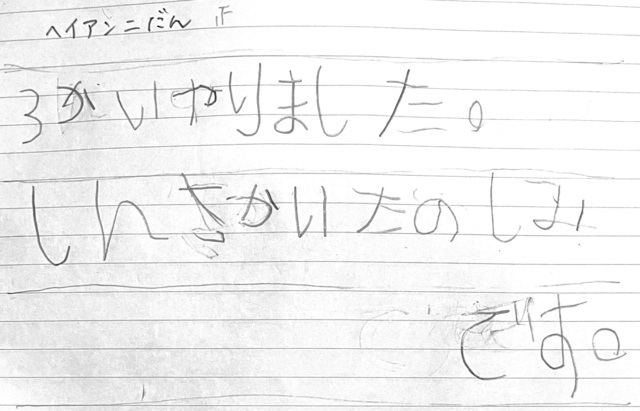 ヘイアン二だん 正
3かいやりました。
しんさかいたのしみ
です。